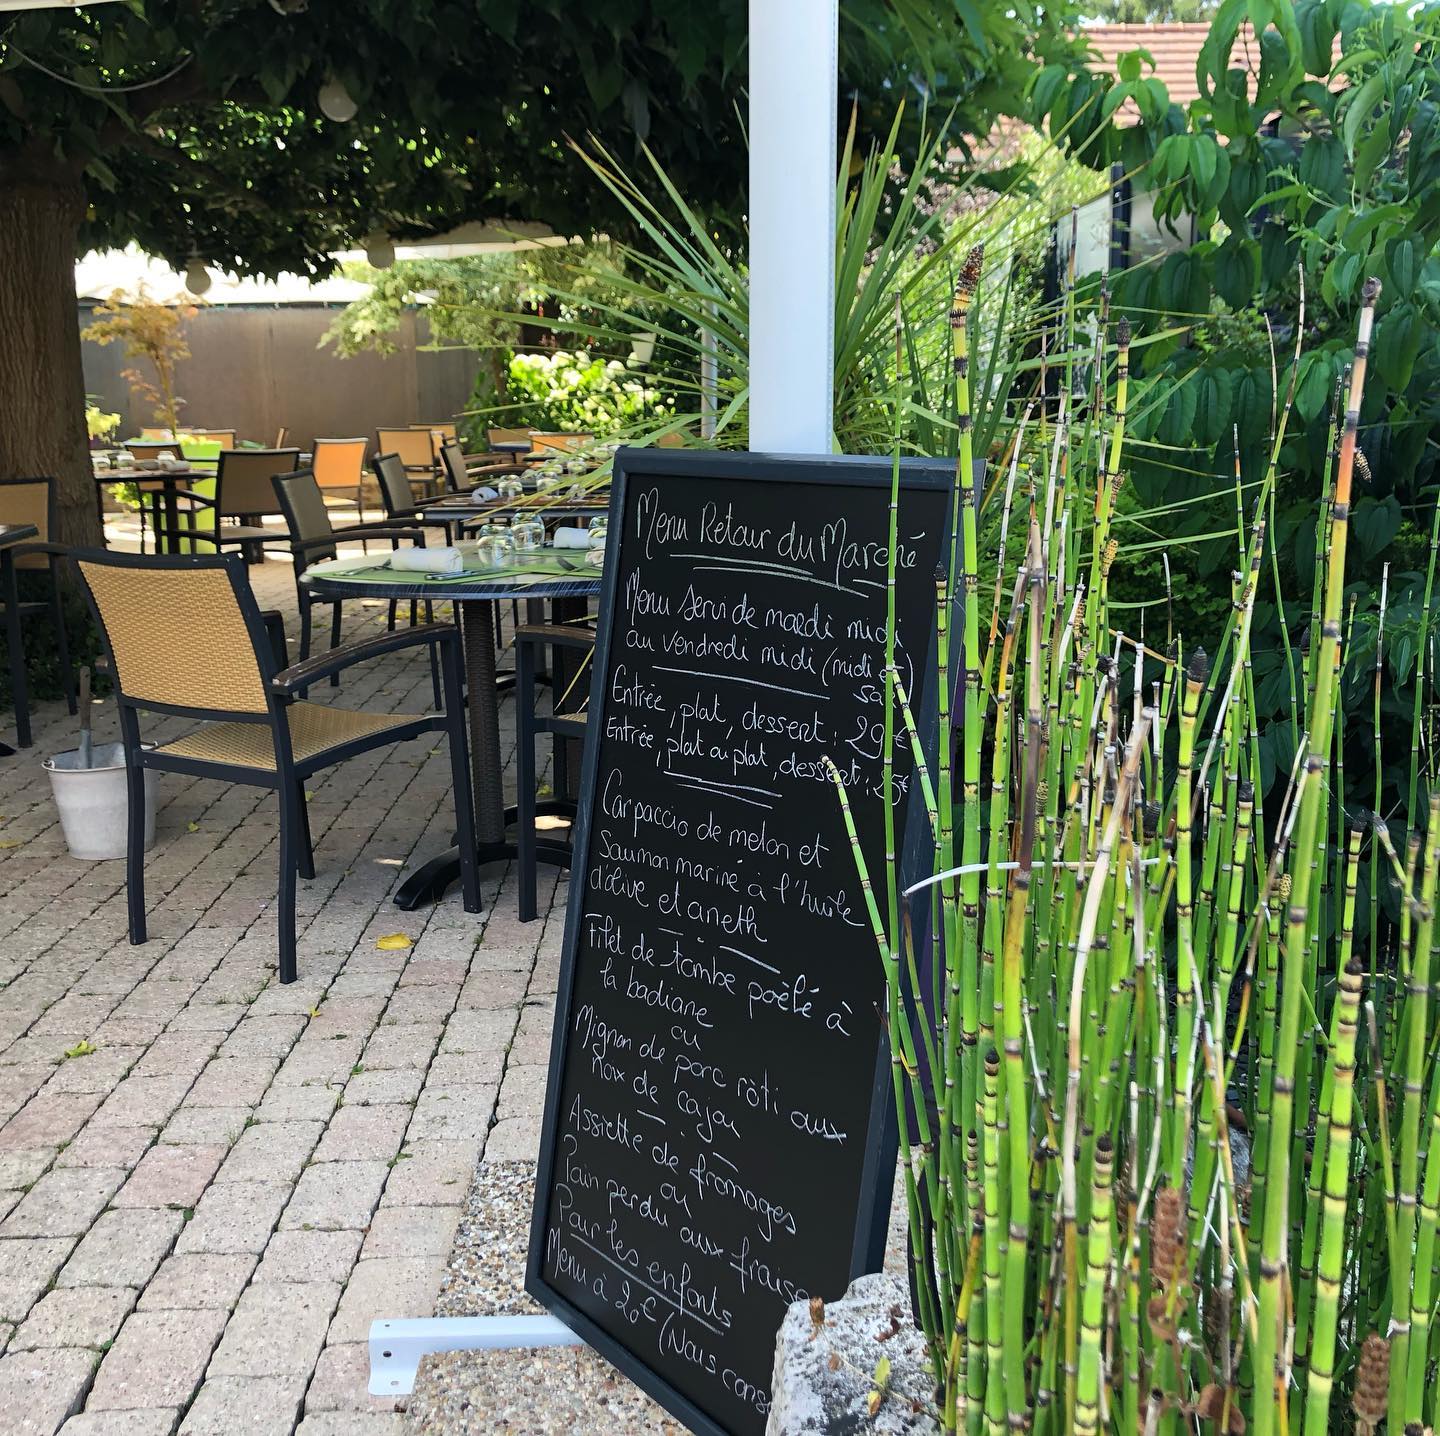 Menu Retour du Marché
Menu servi de mardi midi
au vendredi midi (midi et
soir)
Entrée, plat, dessert : 29€
Entrée, plat ou plat, dessert : 25€
Carpaccio de melon et
saumon mariné à l'huile
d'olive et aneth
Filet de tombe poêlé à
la badiane
ou
Mignon de porc rôti aux
noix de cajou
Assiette de fromages
ou
Pain perdu aux fraises
Pour les enfants
Menu à 20€ (Nous cons